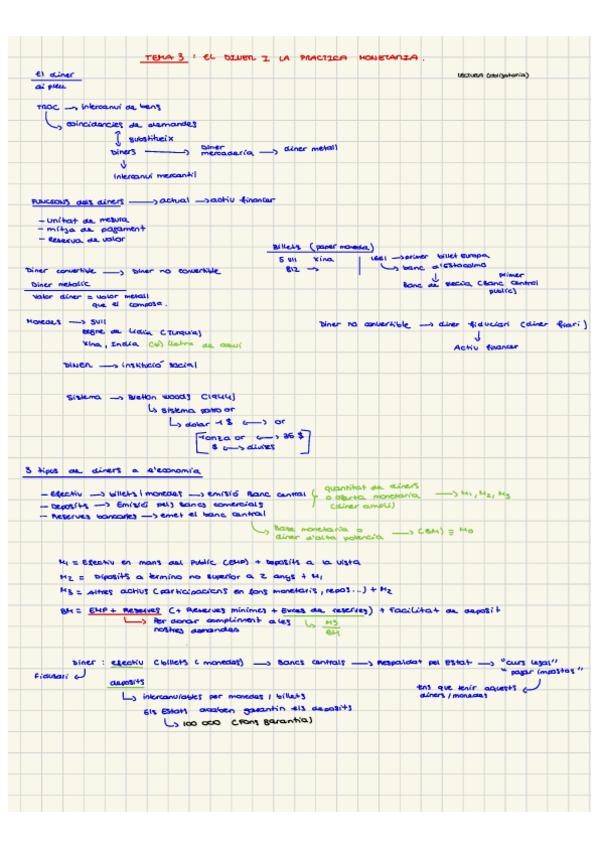 TEMA 3 : EL DINER I LA PRACTICA MONETARIA.
El diner
LECTURA (obligatoria)
TROC → Intercanvi de bens
coincidencies de demandes
substitueix
Diners → Diner mercaderia → diner metall
Intercanvi mercantil
FUNCIONS dels diners → actual → actiu financer
- Unitat de mesura
- mitja de pagament
- Reserva de valor
Billets (paper moneda)
S VII Xina
812 →
1661 → primer billet Europa
banc d'Estocolmo
Banc de Suecia (Primer Banc Central public)
Diner convertible → Diner no convertible
Diner metalic
Valor diner = valor metall
que el composa.
Monedes → SVII
Regne de Lidia (Turquia)
Xina, India
Diner no convertible → diner fiduciari (diner fiari)
Activ financer
DINER → institució social
Sistema → Bretton Woods (1944)
Sistema patro or
dolar → $ ↔ or
1 onza or ↔ 35 $
$ ↔ divises
3 tipos de diners a l'economia
- Efectiu → billets i monedes → emisió Banc central
- Deposits → Emisió pels Bancs comercials
- Reserves bancaries → emet el banc central
quantitat de diners
o oferta monetaria
(diner ampli)
→ M1, M2, M3
Base monetaria o
diner d'alta potencia → (BM) = M0
M1 = Efectiu en mans del Public (EMP) + Deposits a la vista
M2 = Diposits a termino no superior a 2 anys + M1
M3 = Altres actius (participacions en fons monetaris, repos...) + M2
BM = EMP + Reserves (+ Reserves minimes + Exces de reserves) + Facilitat de deposit
Per donar compliment a les
nostres demandes
M3
BM
Diner : efectiu (billets i monedes) → Bancs centrals → Respaldat pel Estat → "curs legal"
"pagar impostos"
Fiduciari
tens que tenir aquests
diners/monedes
deposits
intercanviables per monedes / billets
Els Estats acaben garantin els deposits
100 000 (Fons garantia)